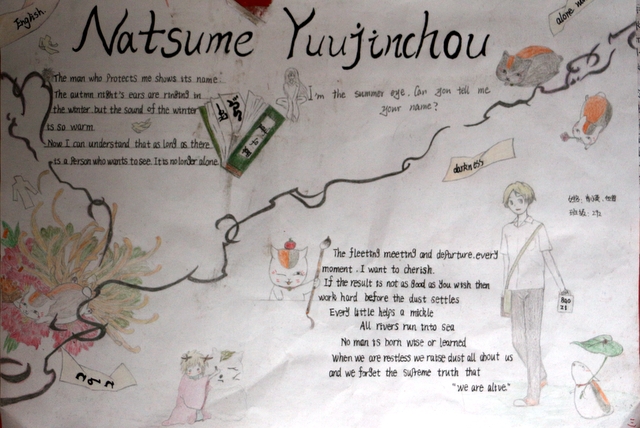 English.
Natsume Yuujinchou
alone
The man who Protects me shows its name.
The autmn might's ears are ringing in
the winter. but the sound of the winter
is so warm.
Now I can understand that as lord as there
is a Person who wants to see. It is no longer alone.
I'm the summer eye. Can you tell me
your name?
darkness
The fleeting meeting and departure. every
moment. I want to cherish.
If the result is not as good as you wish then
work hard before the dust settles
Every little helps a mickle
All rivers run into sea
No man is born wise or learned
When we are restless we raise dust all about us
and we forget the supreme truth that
"we are alive."